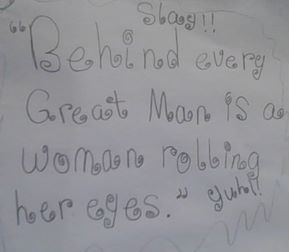 Slay!!
"Behind every
Great Man is a
woman rolling
her eyes." yuh!!